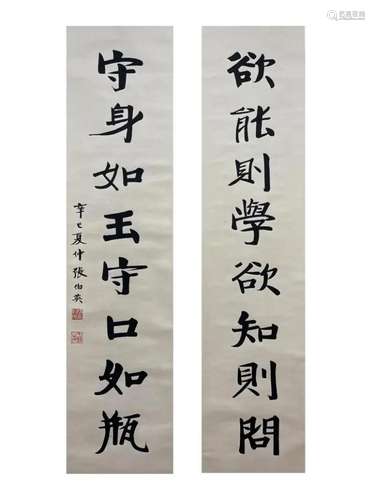 欲能則學欲知則問
守身如玉守口如瓶
辛巳夏仲張伯英